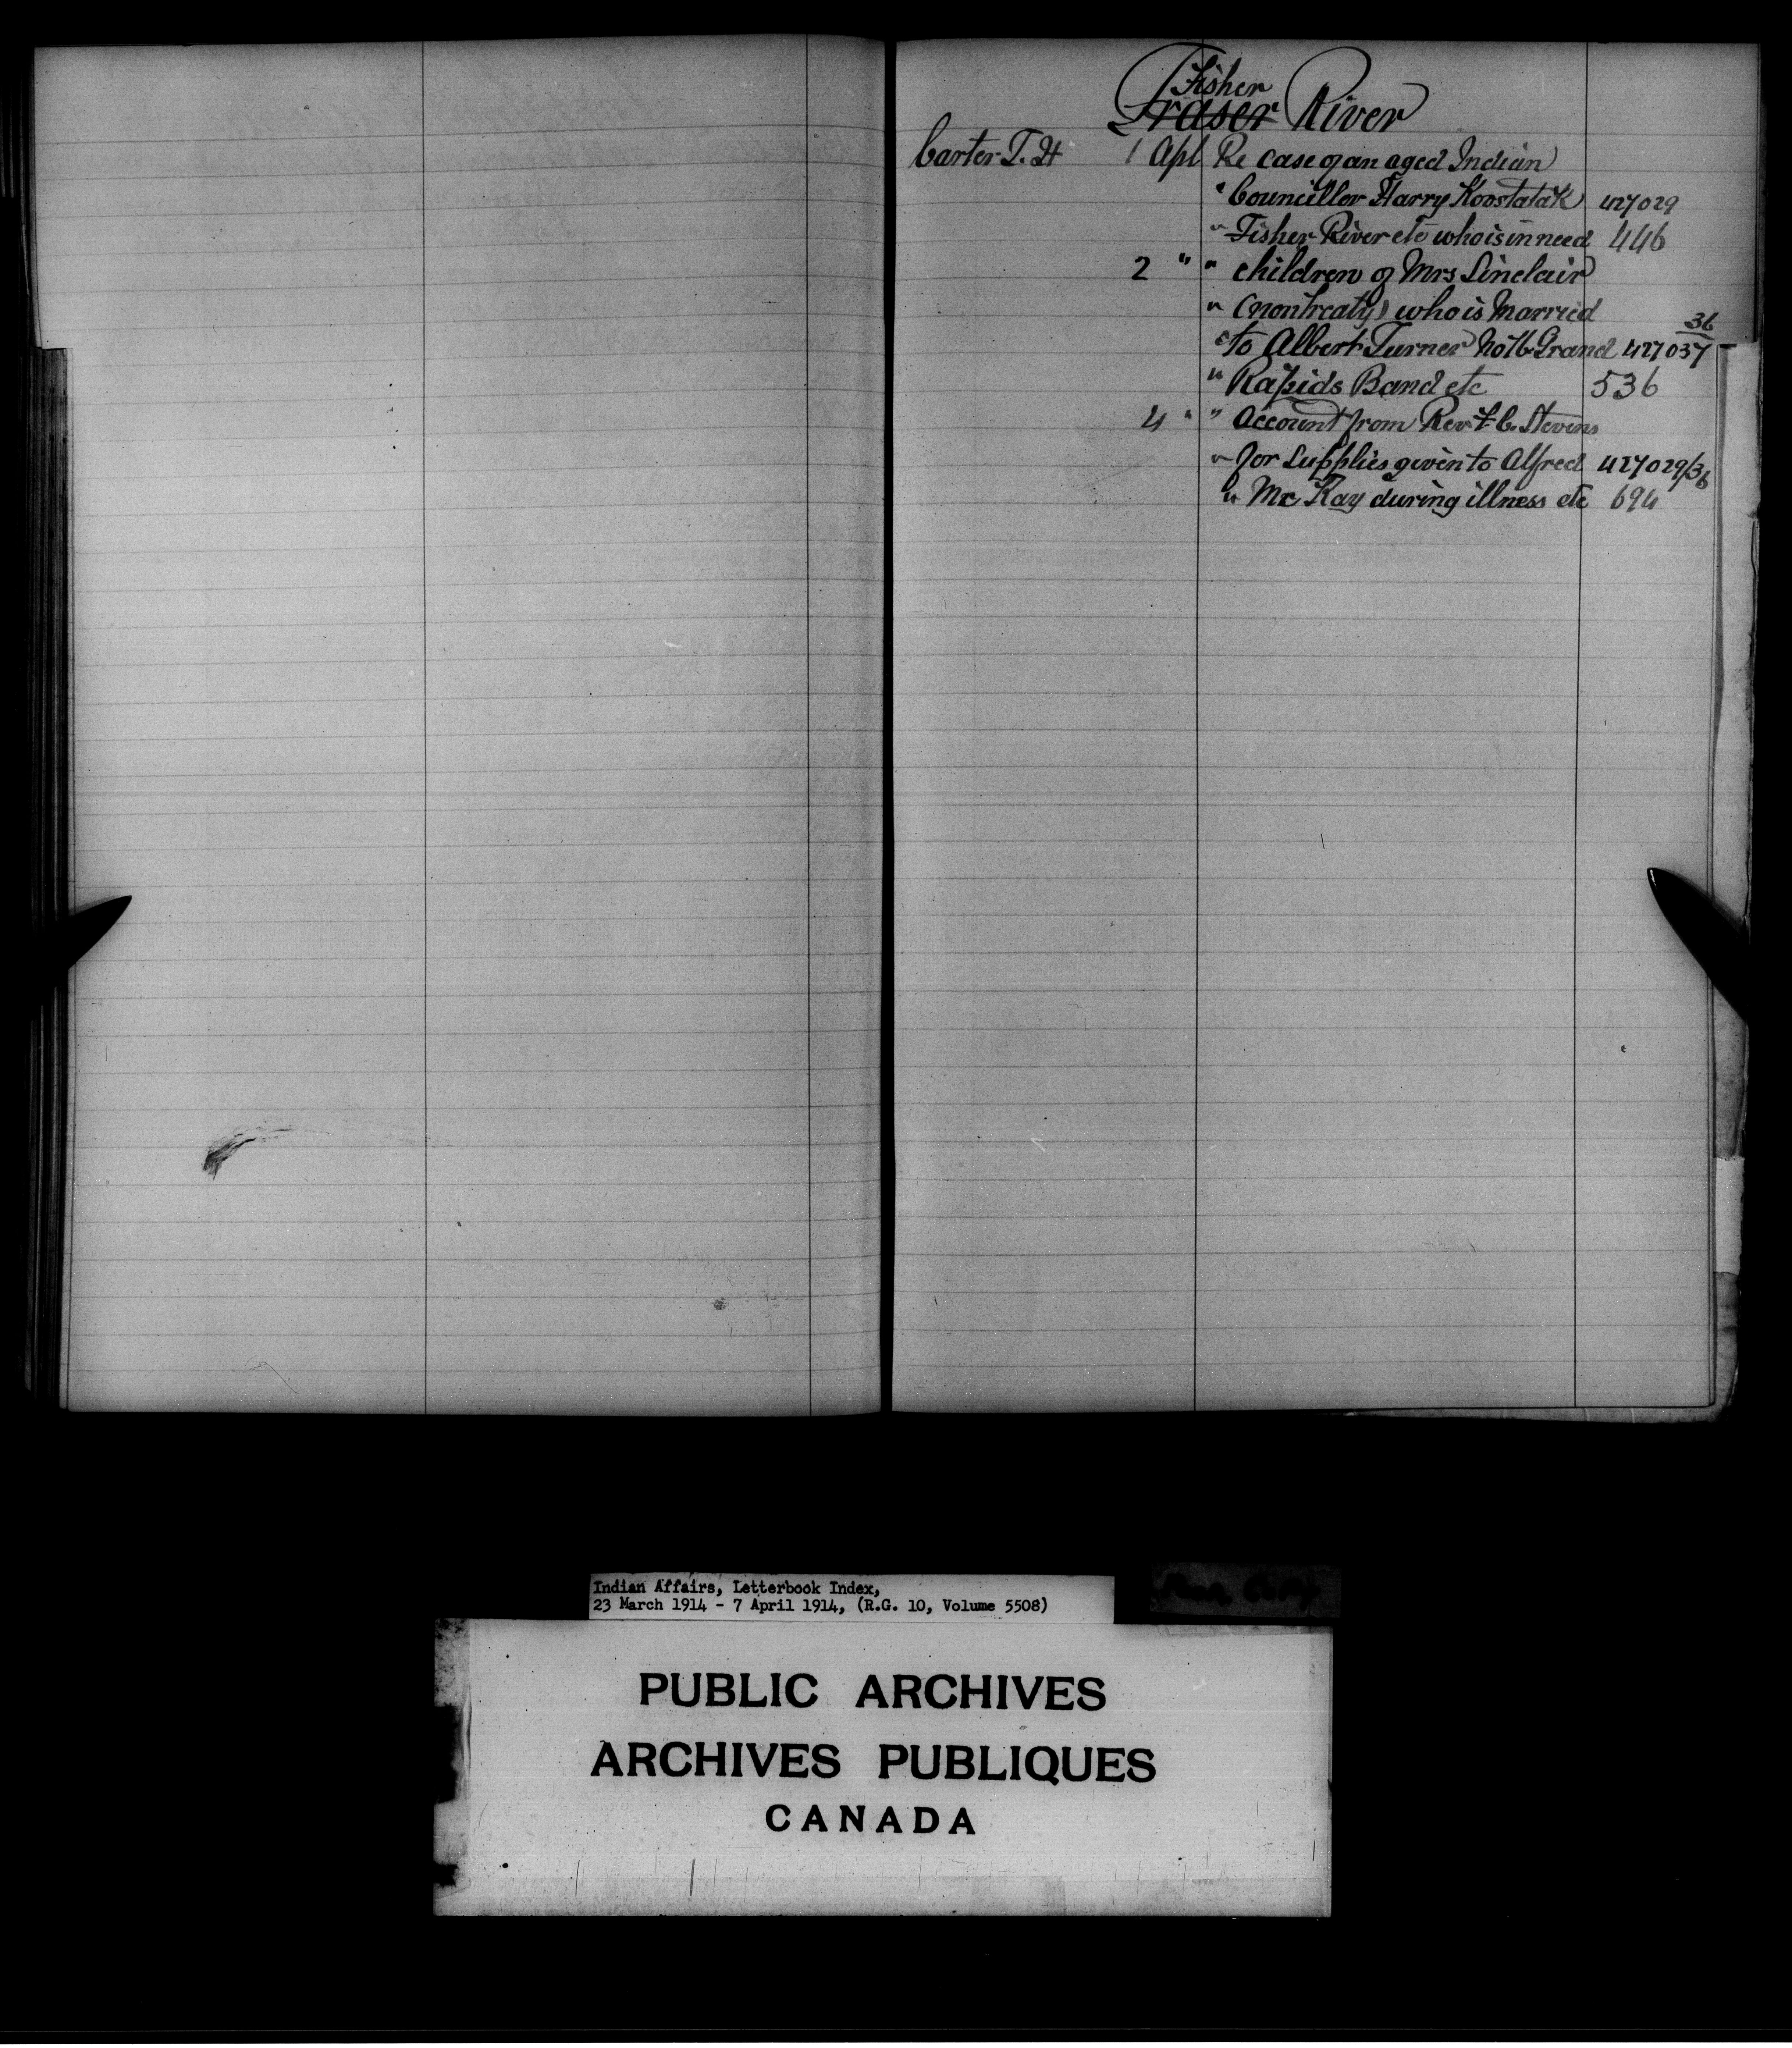 Fisher
Fraser River
Carter T. H 1 Apl Re case of an aged Indian
" Councillor Harry Koostatak 427029
" Fisher River etc who is in need 446
2 " " children of Mrs Sinclair
" (nontreaty) who is Married 36
" to Albert Turner No 16 Grand 427037
" Rapids Band etc 536
4 " " Account from Rev F. C. Stevens
" for supplies given to Alfred 427029/36
" Mc Kay during illness etc 694
Indian Affairs, Letterbook Index,
23 March 1914 - 7 April 1914, (R.G. 10, Volume 5508)
PUBLIC ARCHIVES
ARCHIVES PUBLIQUES
CANADA